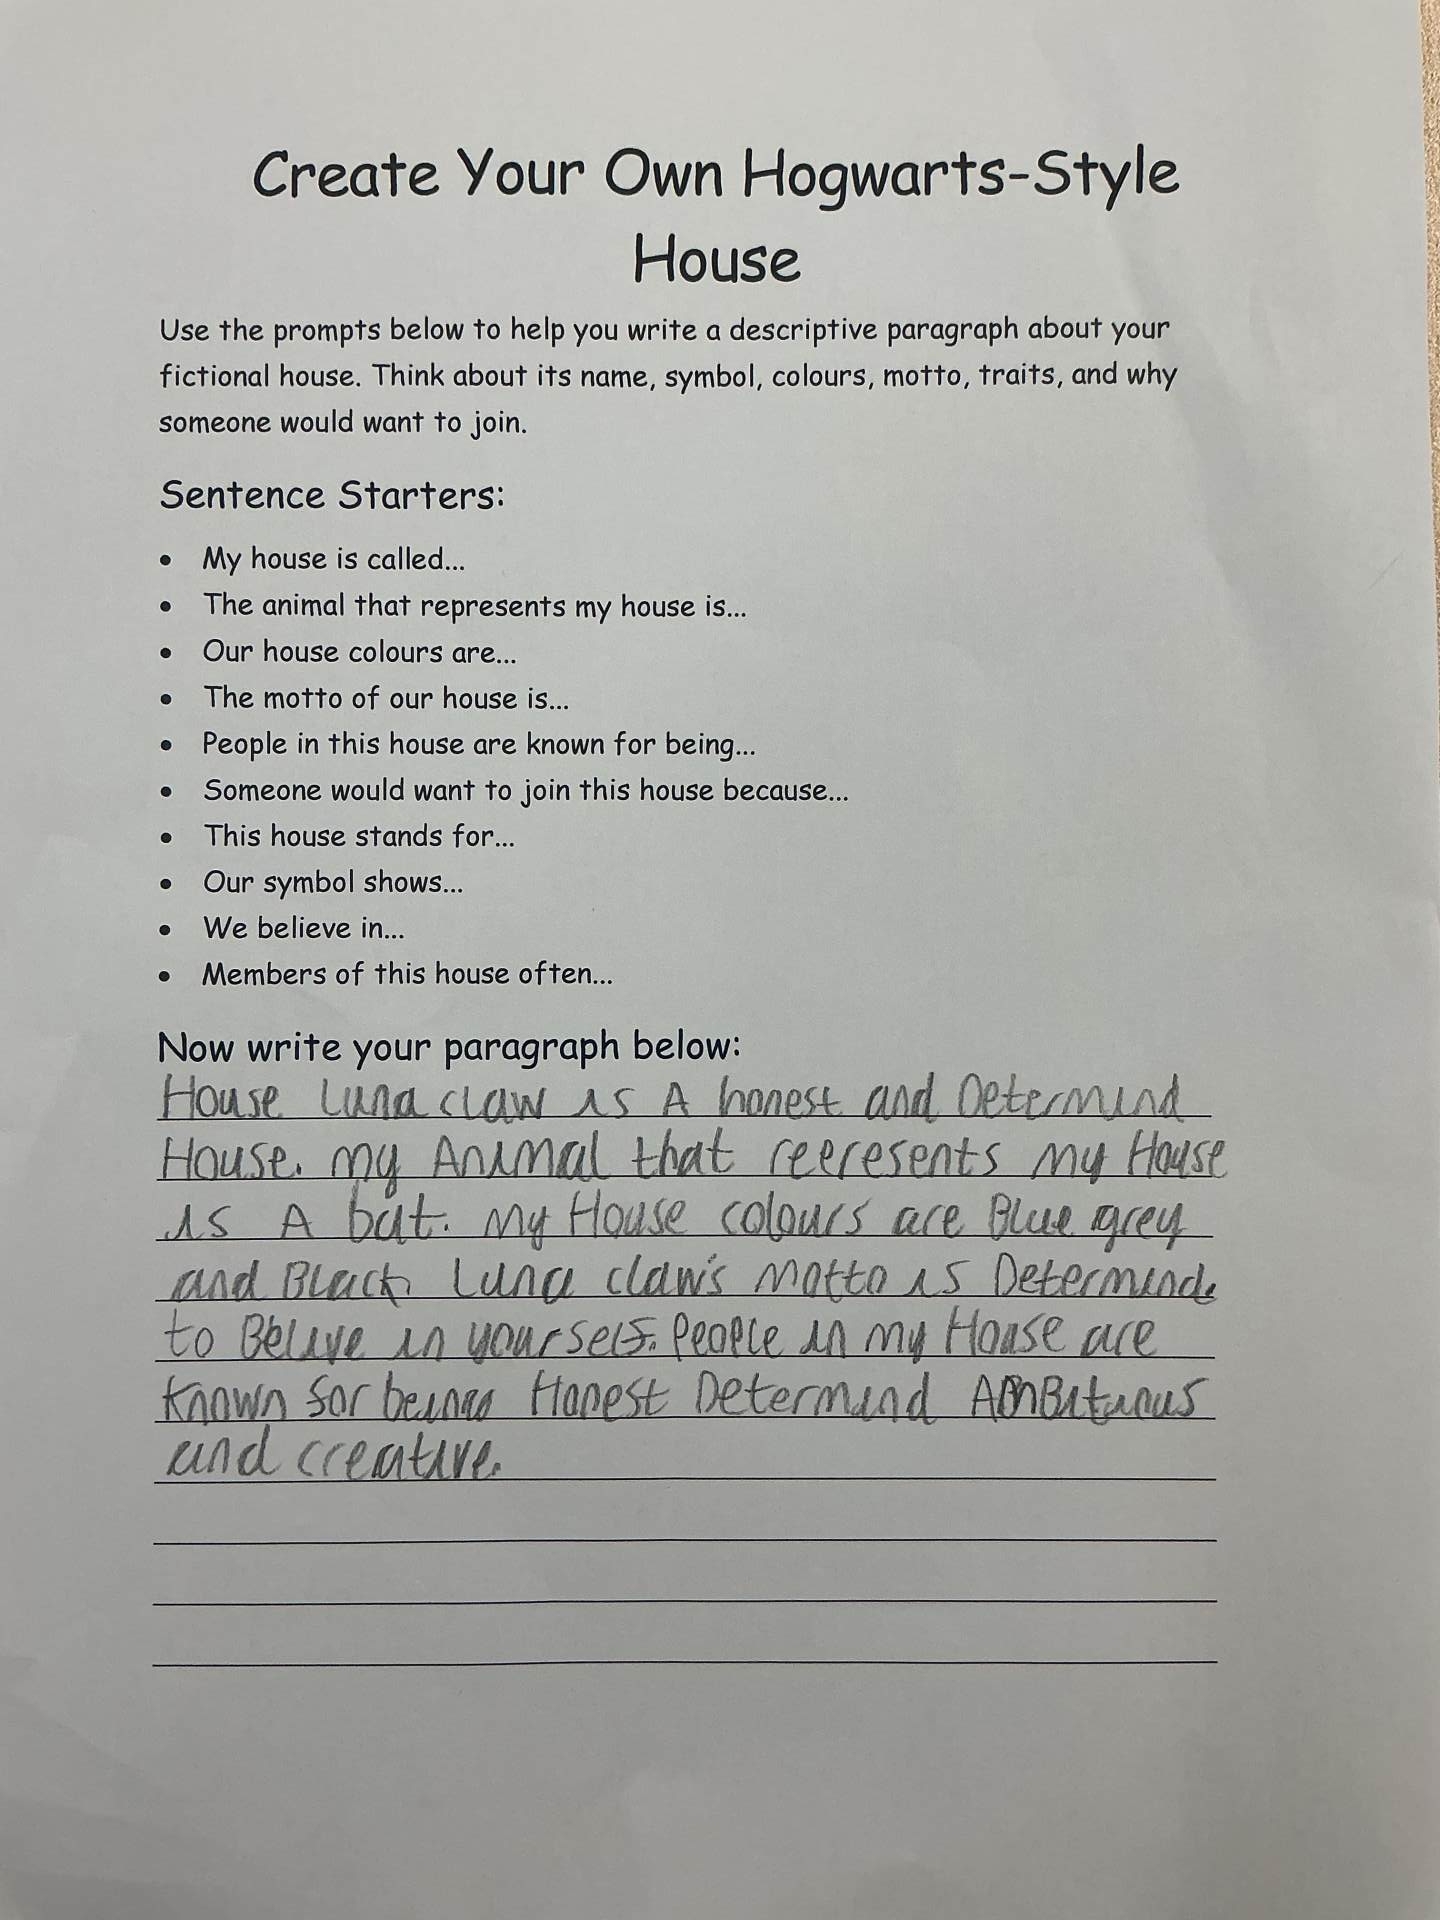 Create Your Own Hogwarts-Style
House
Use the prompts below to help you write a descriptive paragraph about your
fictional house. Think about its name, symbol, colours, motto, traits, and why
someone would want to join.
Sentence Starters:
• My house is called...
• The animal that represents my house is...
• Our house colours are...
• The motto of our house is...
• People in this house are known for being...
• Someone would want to join this house because...
• This house stands for...
• Our symbol shows...
• We believe in...
• Members of this house often...
Now write your paragraph below:
House Luna claw is A honest and Determind
House. my Animal that reeresents my House
is A bat. My House colours are Blue grey
and Black. Luna claw's motto is Determind
to Belive in yourself. People in my House are
known for being Honest Determind AmBitious
and creative.